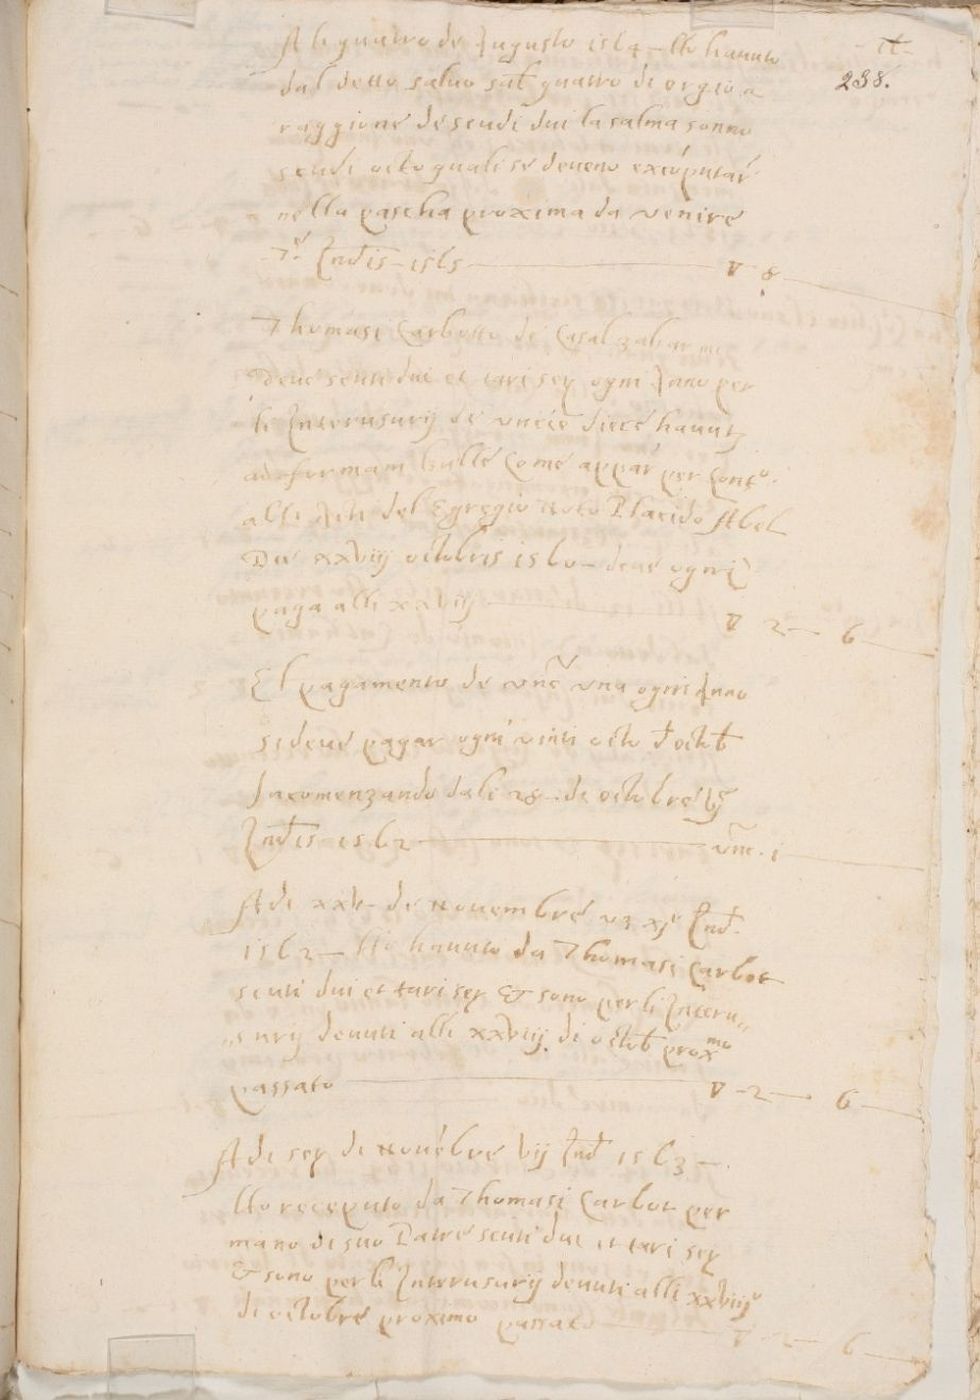 A li quatro de Augusto 1564 – Ho hauuto
238.
dal detto saluo sal̃ quatro di orgio a
raggione de scudi dui la salma sonno
scudi octo quali se deueno excõputar
nella pascha proxima da venire
7.e Ind̃is – 1565 ——— ∇ 8
Thomasi Carbotto de Casal zabar mi
Deue scuti dui et tari sey ogni Anno per
li Interusurij de uncie diece hauutj
ad formam bulle Come appar per Conto.
alli Acti del Egregio noto Placido Abel
Die xxviij octobris 1560 – deue ogni
paga alli xxviij ——— ∇ 2 — 6
El pagamento de unc̃ una ogni Anno
si deue pagar ogni vinti octo d̃ octob̃
Incomenzando dali 28 – de octobre
Ind̃is – 1562 ——— unc̃. i
A di de Nouembre Ind̃.
1562 – Ho hauuto da Thomasi Carbot
scuti dui et tari sey & sono per li Interu
surij deuuti alli xxviij di octob̃ proxmo
passato ——— ∇ – 2 — 6
A di sey di nouẽbre vij Ind̃ 1563 –.
Ho receputo da Thomasi Carbot per
mano di suo Patre scuti dui et tari sey
& sono per li Interusurij deuuti alli xxviijo
di octobre proximo passato ——— ∇ 2 — 6